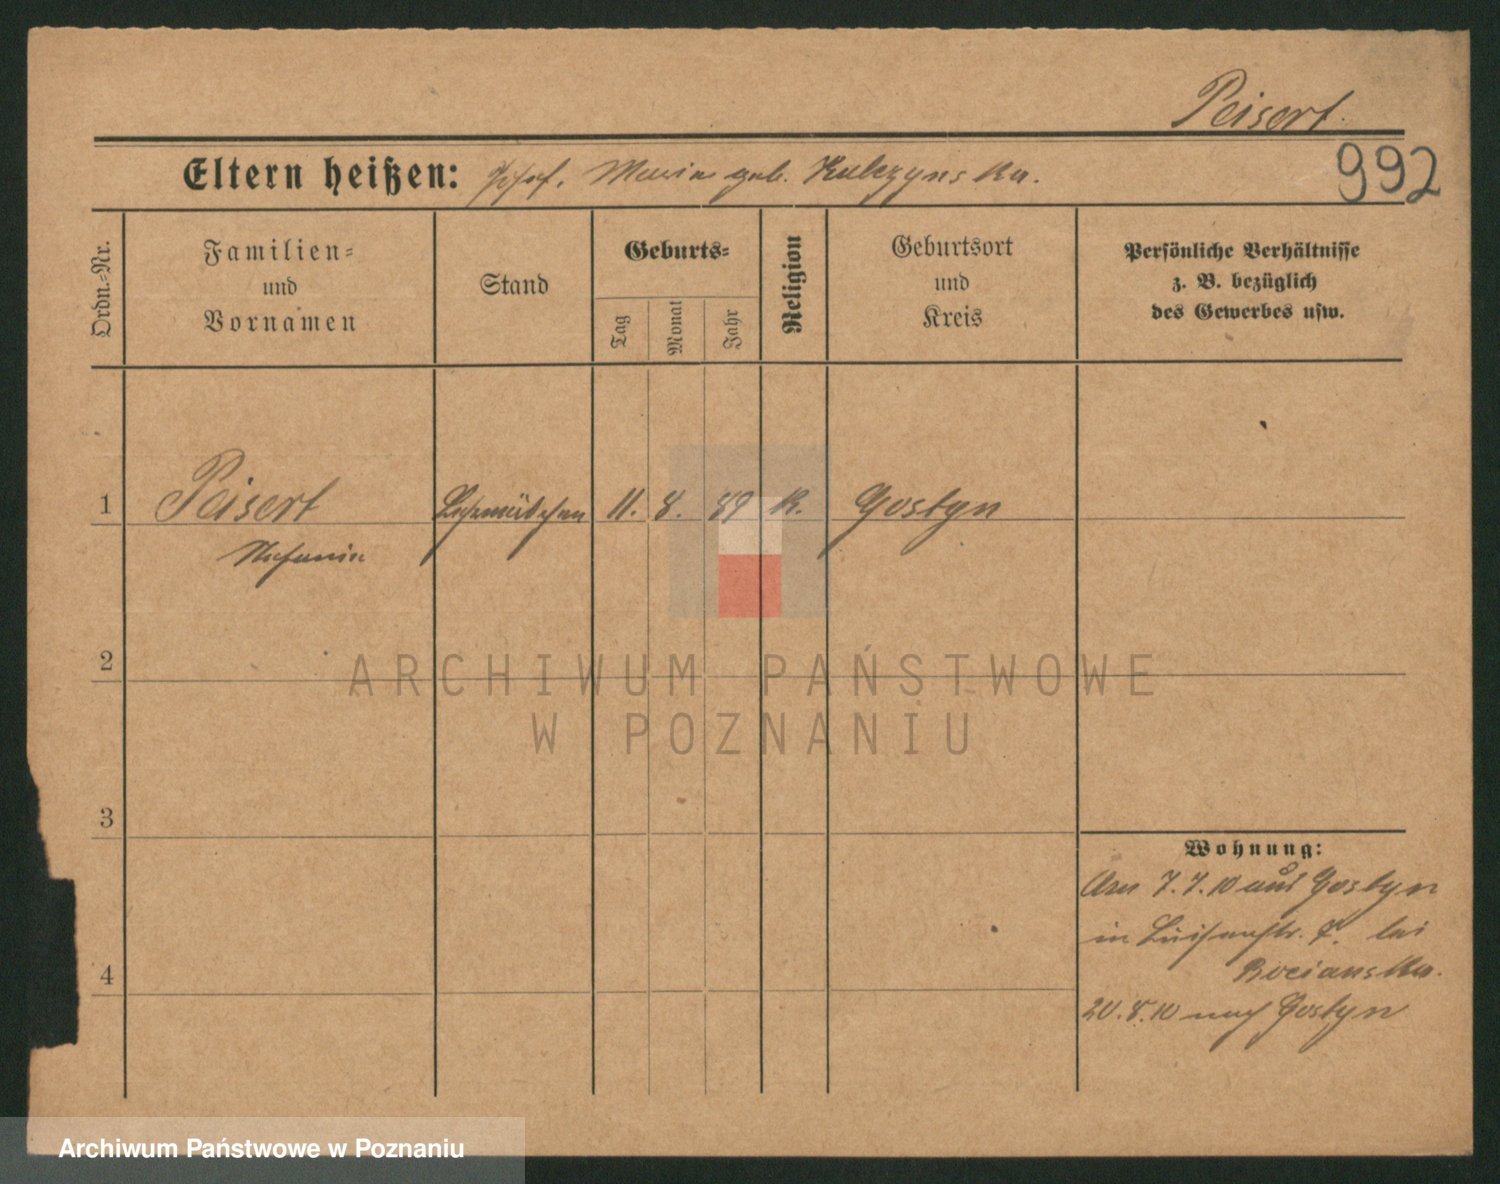 Peisert
Eltern heißen: Josef. Maria geb. Kulczynska.
992
Ordn.=Nr.
Familien=
und
Vornamen
Stand
Geburts=
Tag
Monat
Jahr
Religion
Geburtsort
und
Kreis
Persönliche Verhältnisse
z. B. bezüglich
des Gewerbes usw.
1 Peisert Lehrmädchen 11. 8. 89 K. Gostyn
Stefania
2
ARCHIWUM PAŃSTWOWE
W POZNANIU
3
Wohnung:
7.7.10 aus Gostyn
in Luisenstr. bei
4
20.8.10 nach Gostyn
Archiwum Państwowe w Poznaniu